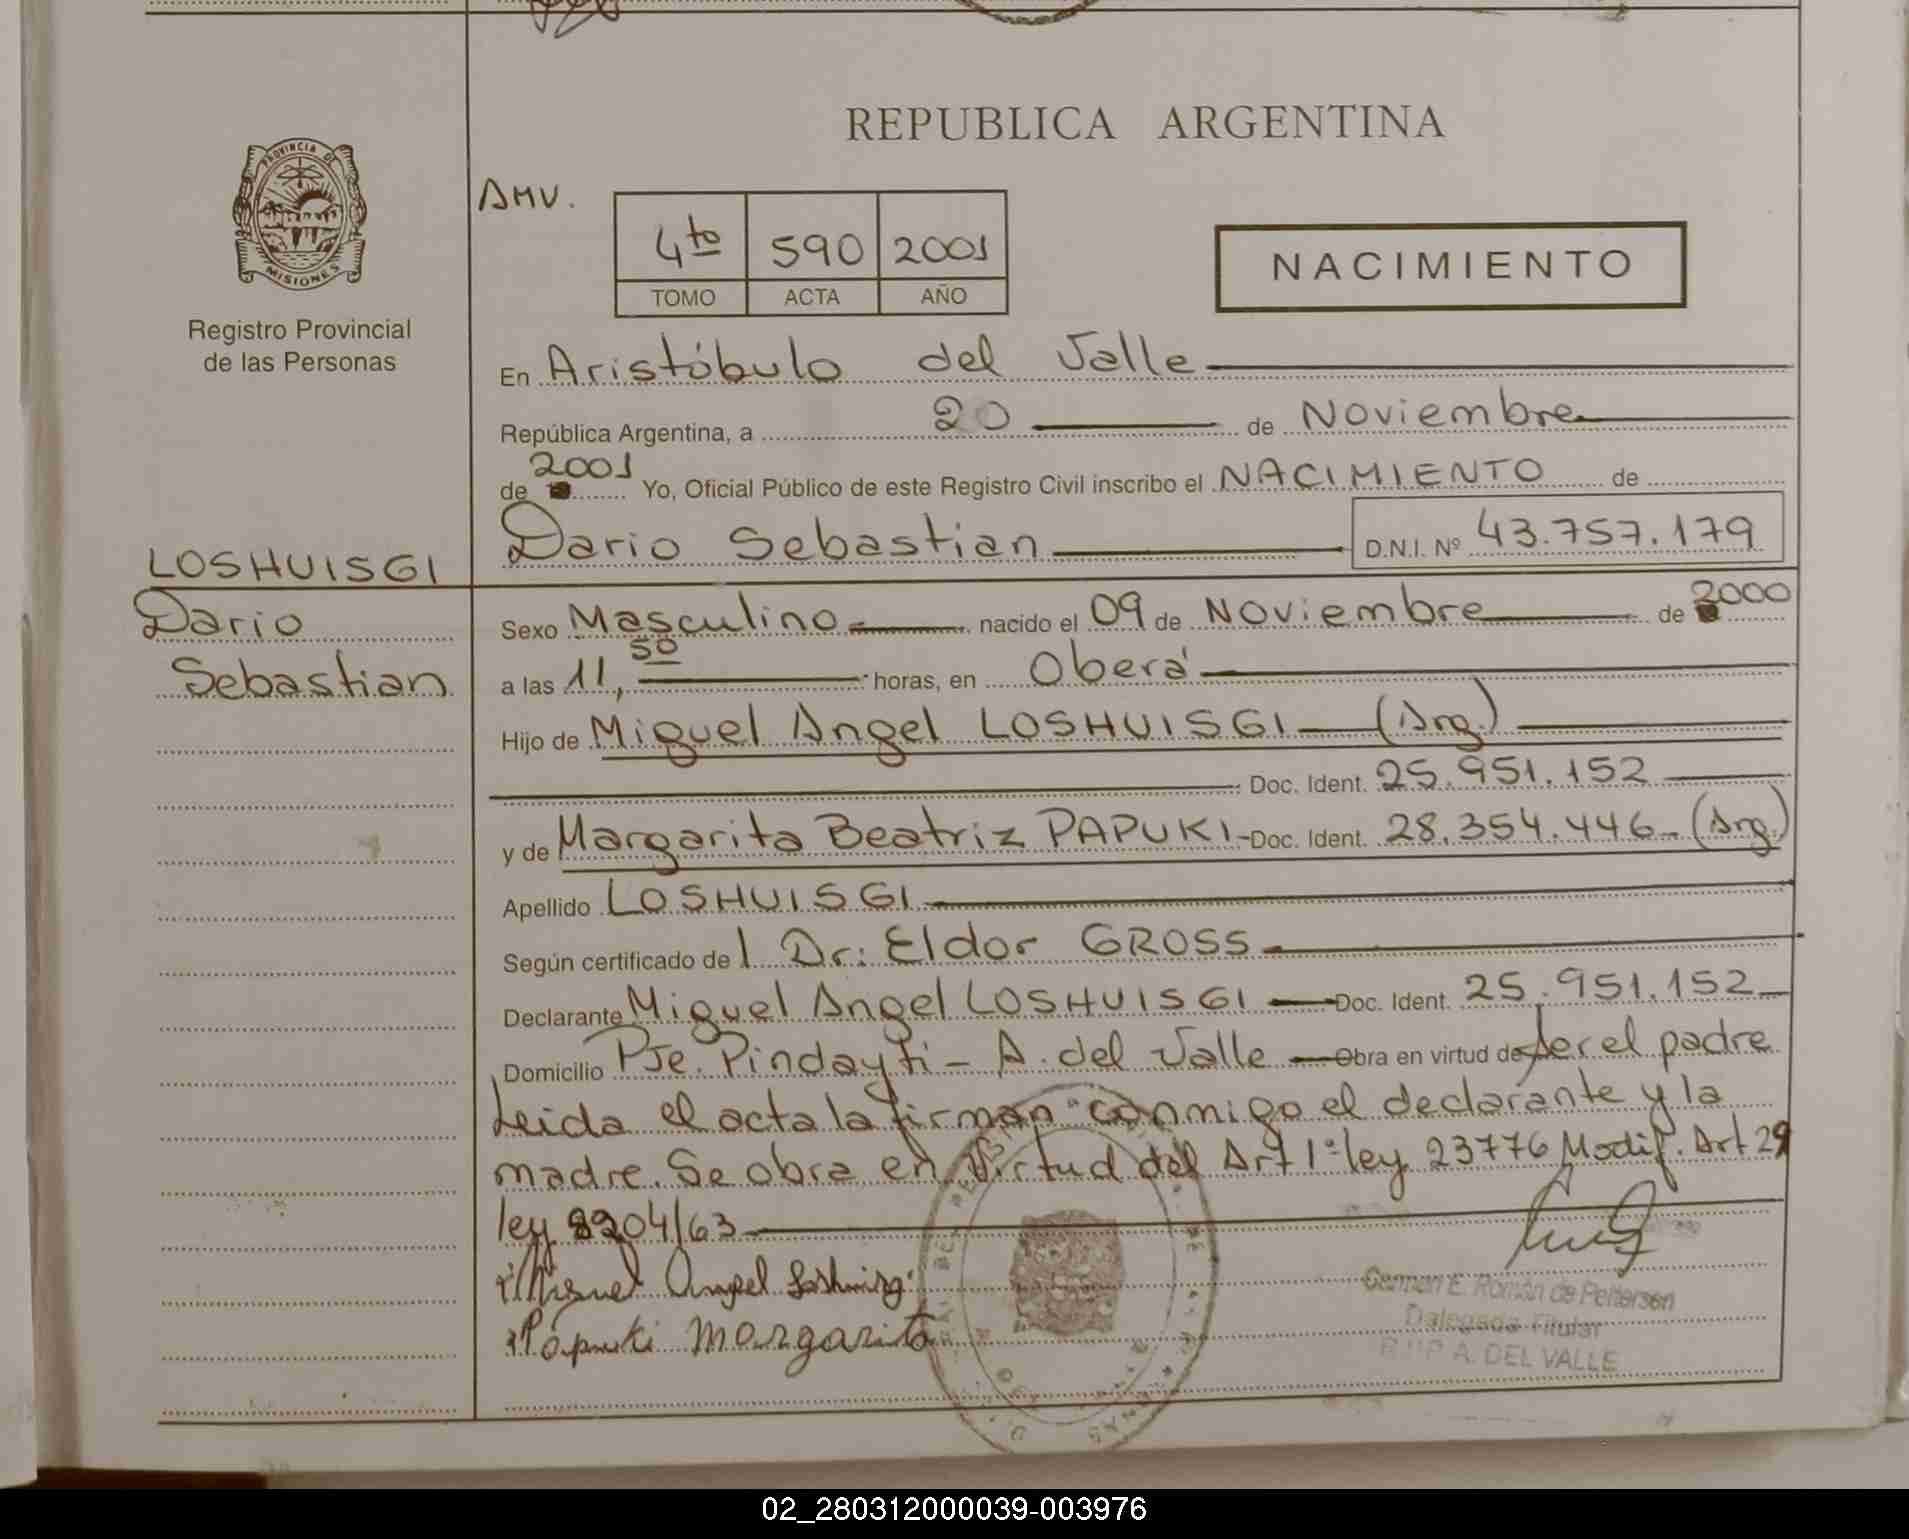 REPUBLICA ARGENTINA
PROVINCIA DE
MISIONES
Registro Provincial
de las Personas
AMV.
4to 590 2001
TOMO ACTA AÑO
NACIMIENTO
En Aristóbulo del Valle
República Argentina, a 20 de Noviembre
de 2001 Yo, Oficial Público de este Registro Civil inscribo el NACIMIENTO de
Dario Sebastian D.N.I. Nº 43.757.179
LOSHUISGI
Dario
Sebastian
Sexo Masculino nacido el 09 de Noviembre de 2000
a las 11,50 horas, en Oberá
Hijo de Miguel Angel LOSHUISGI (Arg.)
Doc. Ident. 25.951.152
y de Margarita Beatriz PAPUKI - Doc. Ident. 28.354.446 - (Arg.)
Apellido LOSHUISGI
Según certificado del Dr: Eldor GROSS
Declarante Miguel Angel LOSHUISGI Doc. Ident. 25.951.152
Domicilio Pje. Pindayti - A. del Valle Obra en virtud de ser el padre
Leida el acta la firman conmigo el declarante y la
madre. Se obra en virtud del Art 1º ley 23776 Modif. Art 29
ley 8204/63
Miguel Angel Loshuisgi
Papuki Margarita
German E. Román de Pettersen
Delegada Titular
A. DEL VALLE
02_280312000039-003976